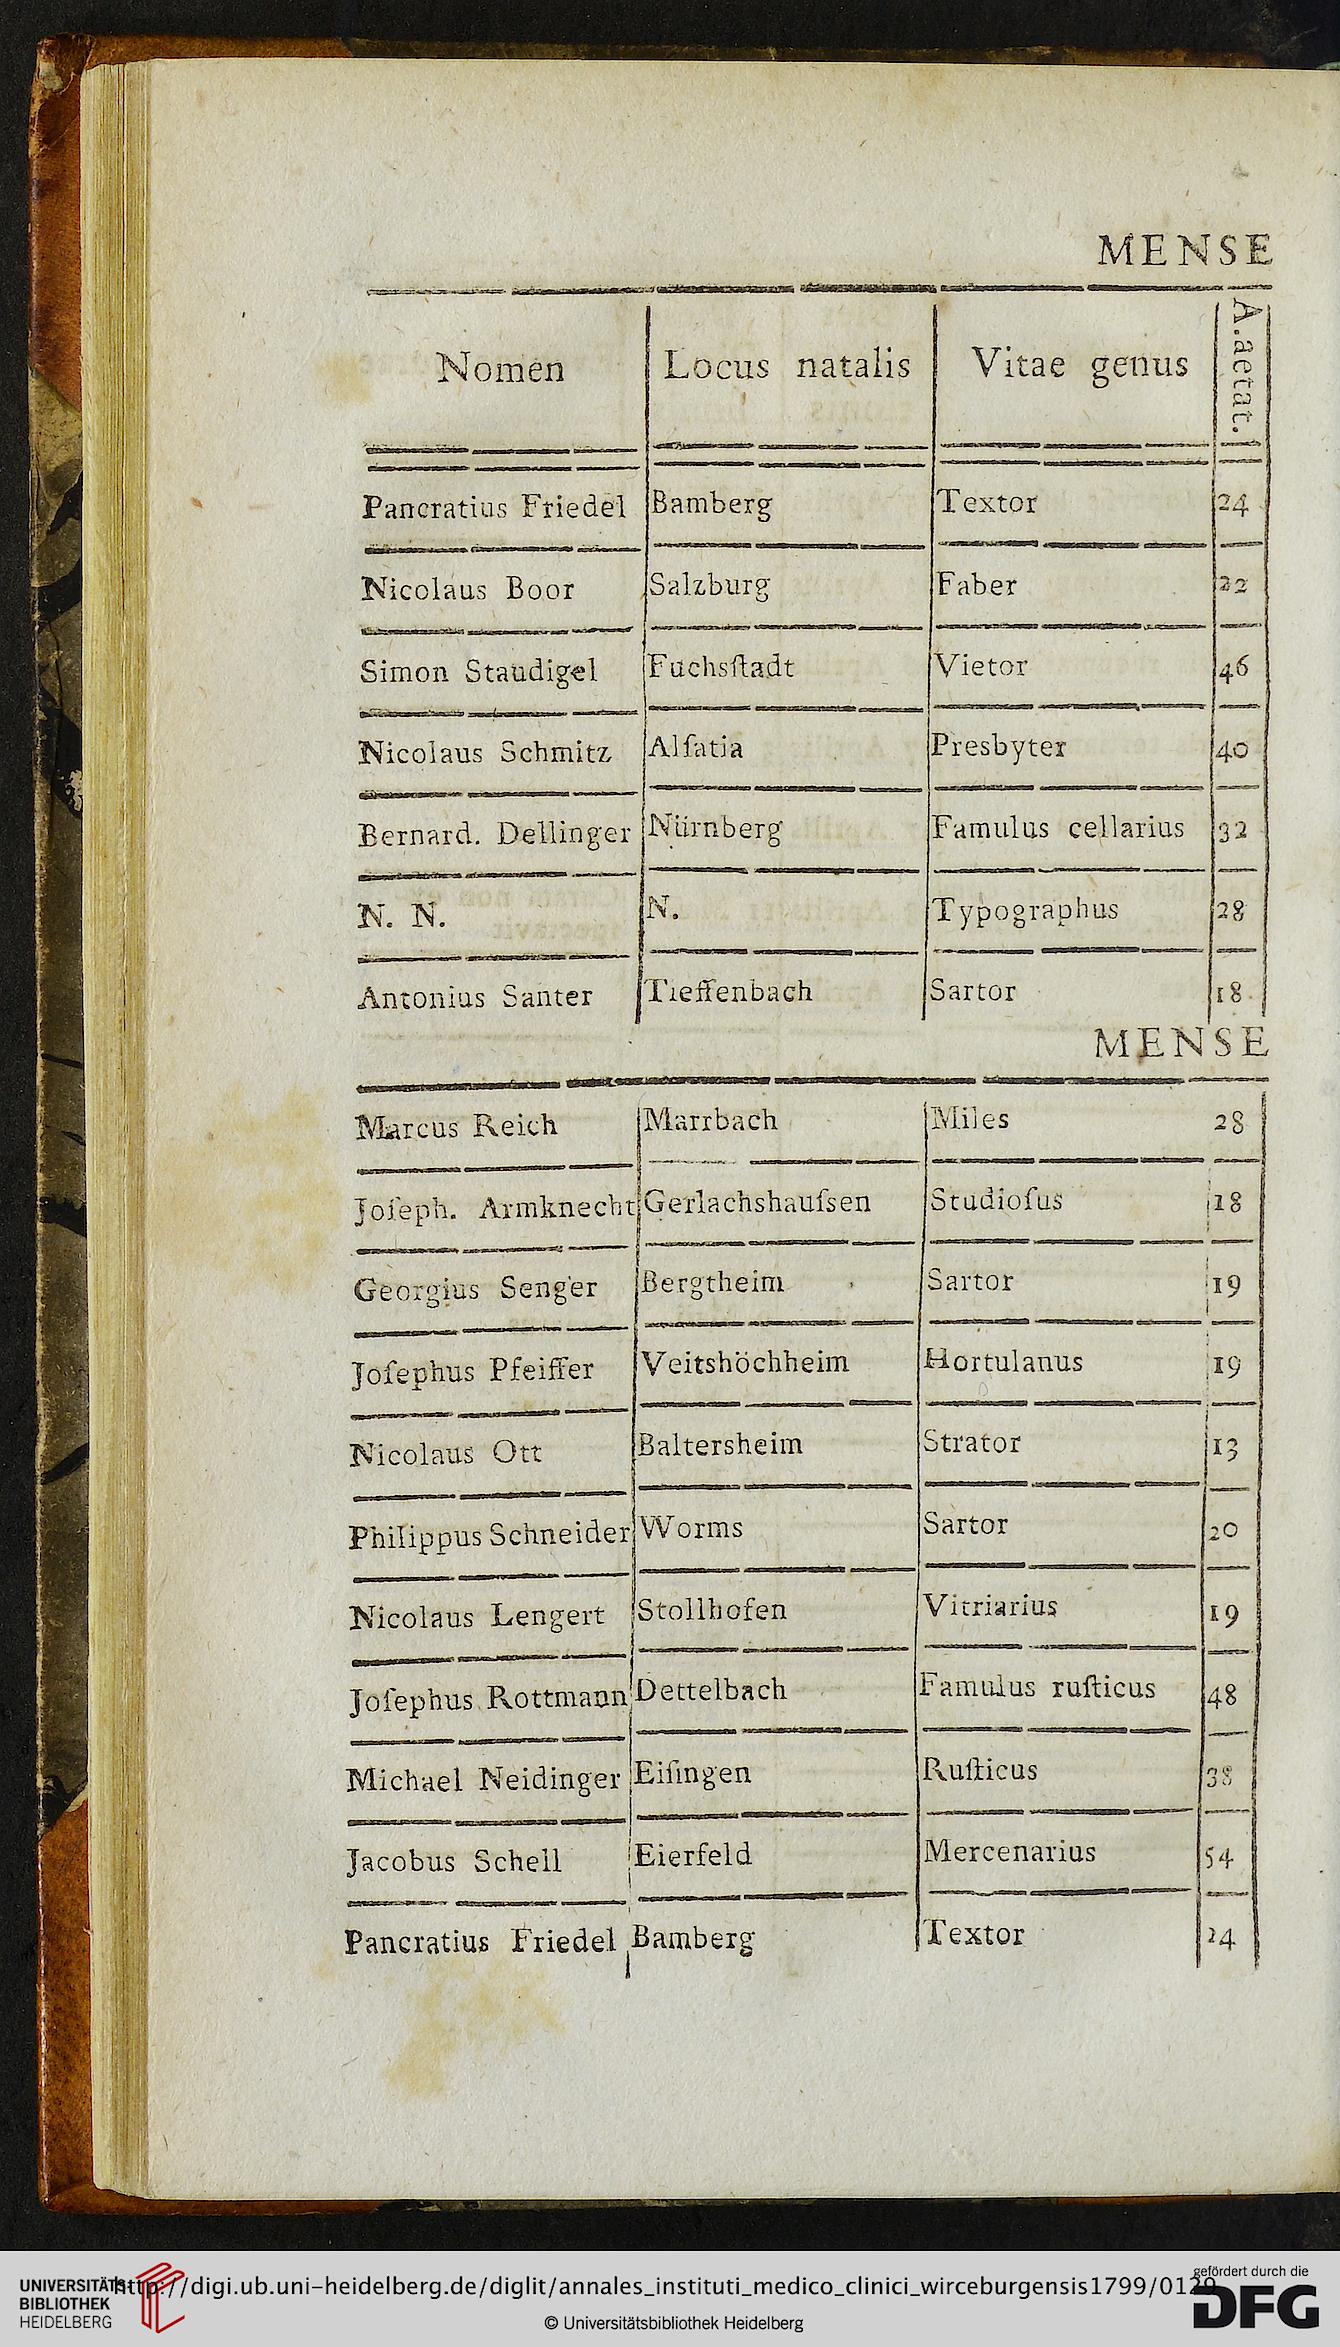 MENSE
Nomen Locus natalis Vitae genus A. aetat.
Pancratius Friedel Bamberg Textor 24
Nicolaus Boor Salzburg Faber 22
Simon Staudigel Fuchsſtadt Vietor 46
Nicolaus Schmitz Alſatia Presbyter 40
Bernard. Dellinger Nürnberg Famulus cellarius 32
N. N. N. Typographus 28
Antonius Santer Tieffenbach Sartor 18
MENSE
Marcus Reich Marrbach Miles 28
Joſeph. Armknecht Gerlachshauſsen Studioſus 18
Georgius Senger Bergtheim Sartor 19
Joſephus Pfeiffer Veitshöchheim Hortulanus 19
Nicolaus Ott Baltersheim Strator 13
Philippus Schneider Worms Sartor 20
Nicolaus Lengert Stollhofen Vitriarius 19
Joſephus Rottmann Dettelbach Famulus ruſticus 48
Michael Neidinger Eiſingen Ruſticus 38
Jacobus Schell Eierfeld Mercenarius 54
Pancratius Friedel Bamberg Textor 24
UNIVERSITÄTS-
BIBLIOTHEK
HEIDELBERG
http://digi.ub.uni-heidelberg.de/diglit/annales_instituti_medico_clinici_wirceburgensis1799/0129
© Universitätsbibliothek Heidelberg
gefördert durch die
DFG